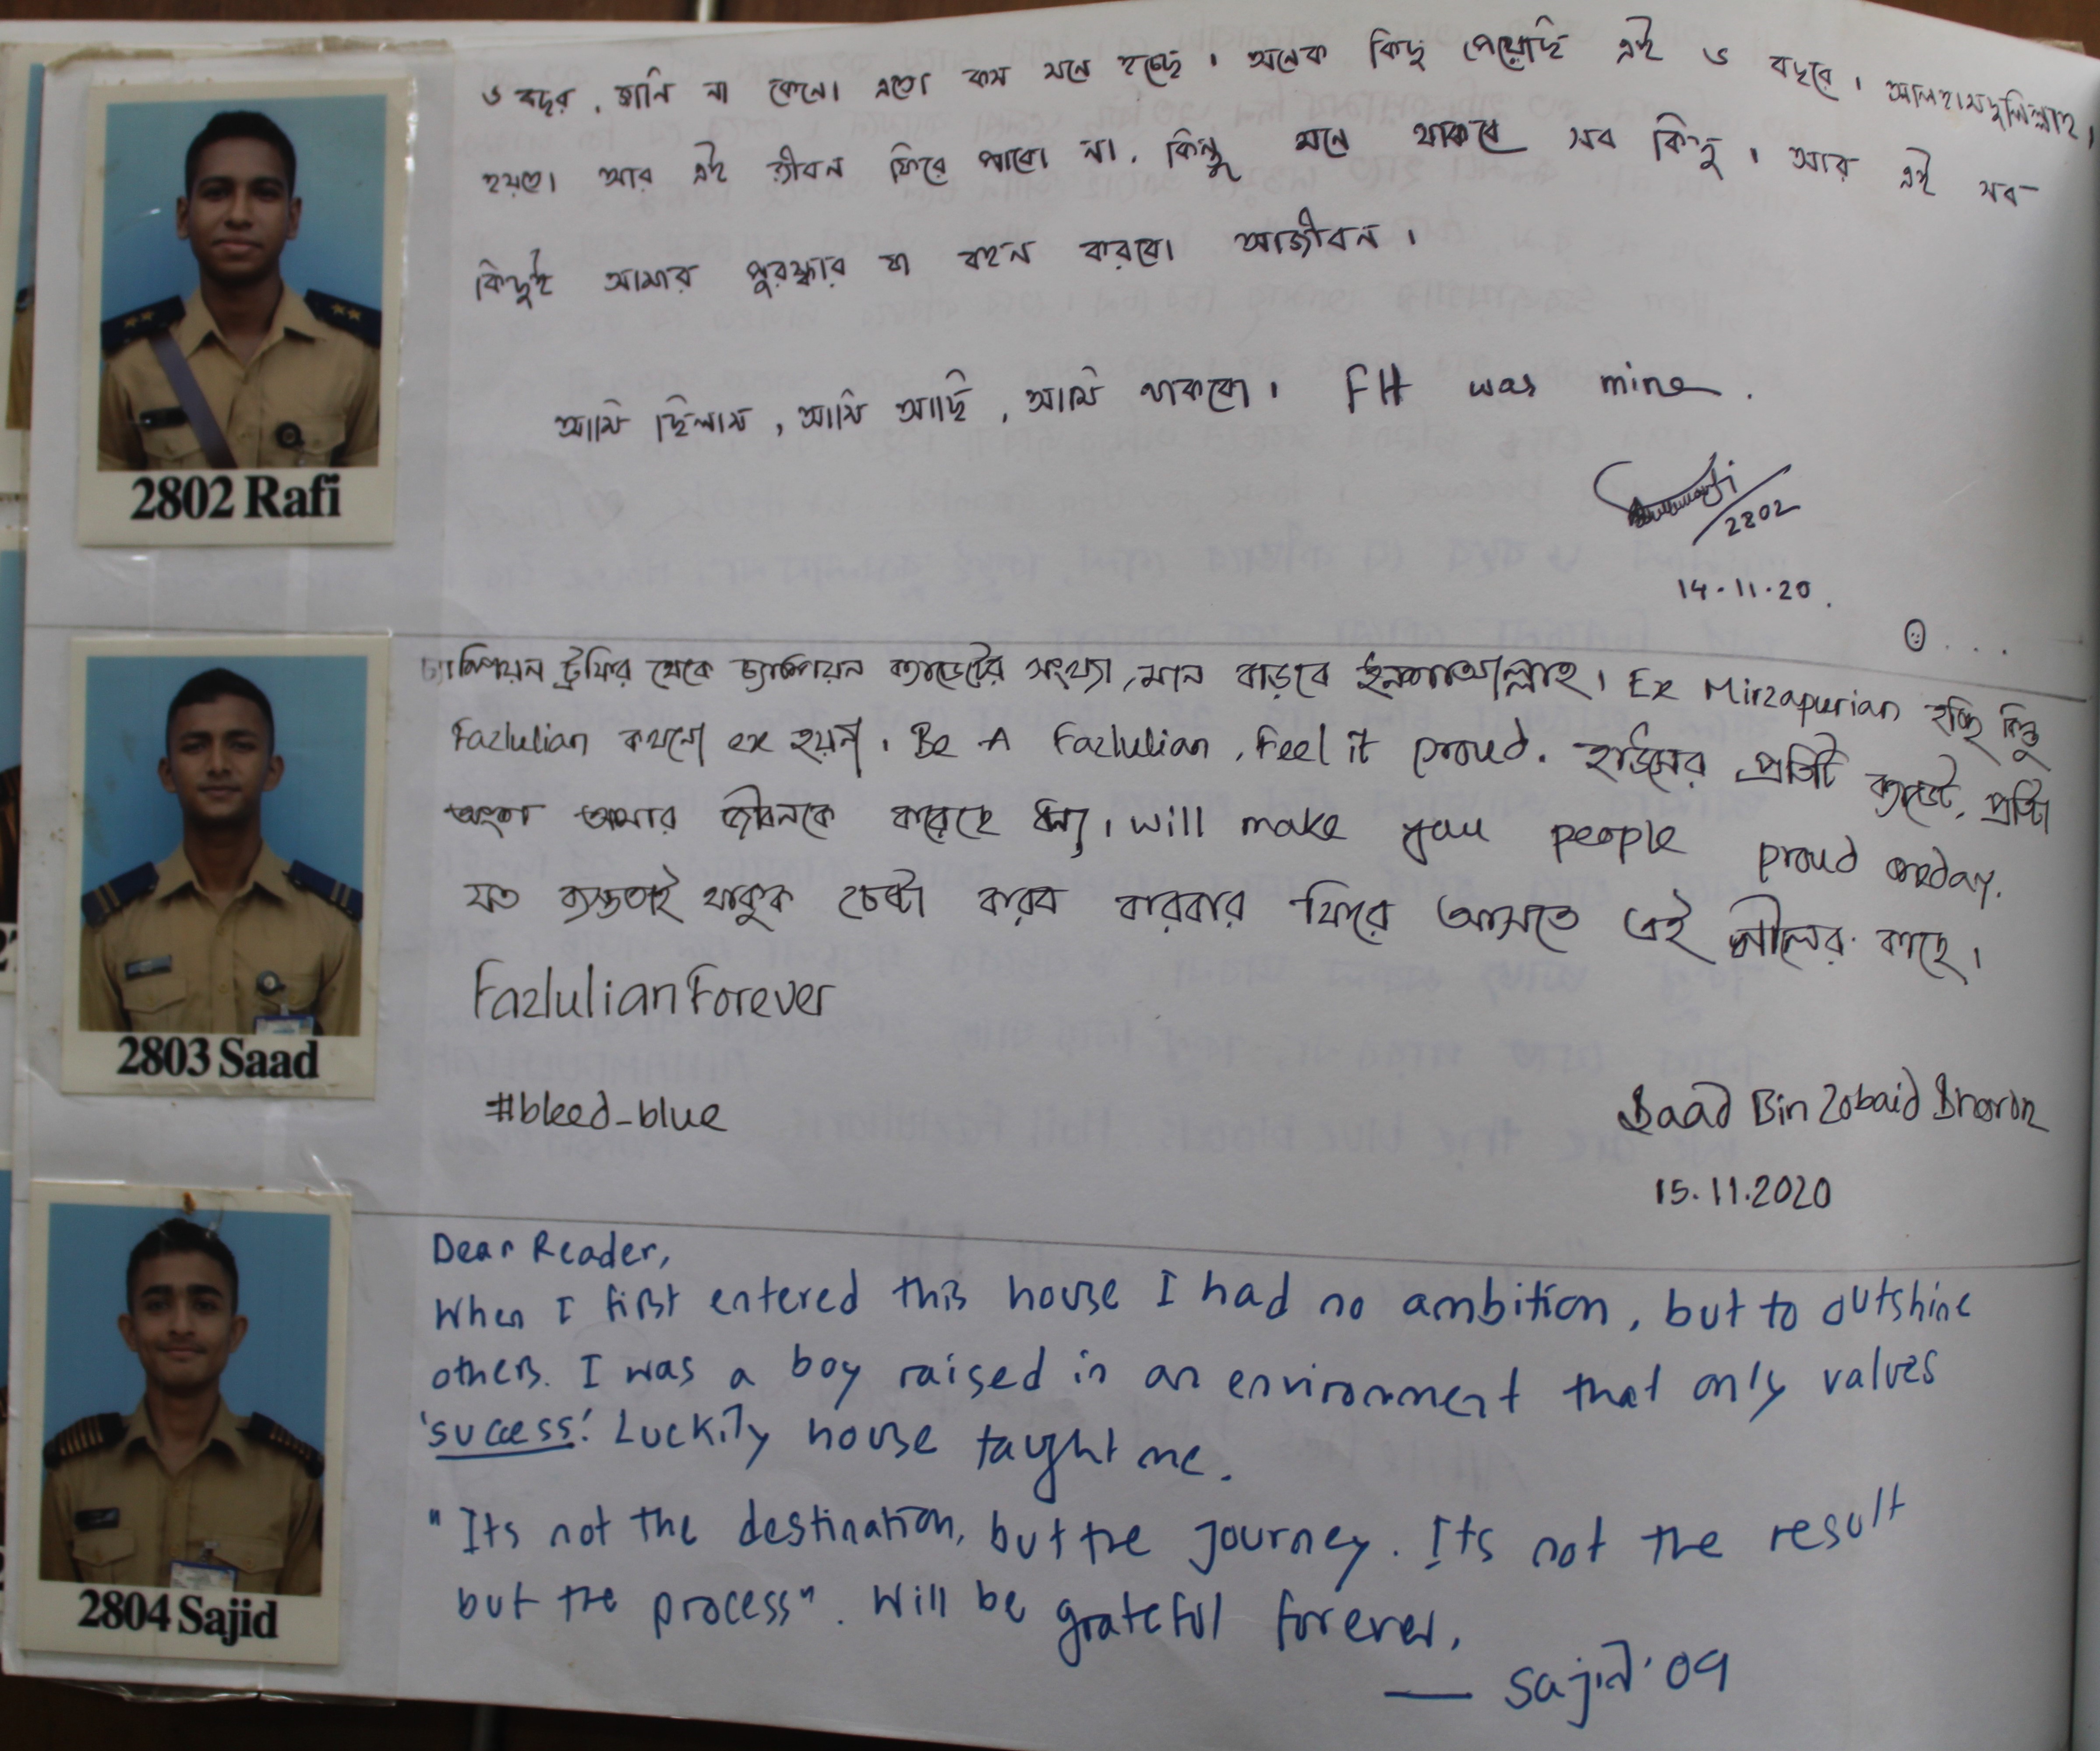 ৬ বছর, জানি না কেনো এতো কম মনে হচ্ছে। অনেক কিছু পেয়েছি এই ৬ বছরে। আলহামদুলিল্লাহ।
হয়তো আর এই জীবন ফিরে পাবো না, কিন্তু মনে থাকবে সব কিছু। আর এই সব
কিছুই আমার পুরষ্কার যা বহন করবো আজীবন।
আমি ছিলাম, আমি আছি, আমি থাকবো। FH was mine.
2802
14.11.20.
2802 Rafi
চ্যাম্পিয়ন ট্রফির থেকে চ্যাম্পিয়ন ক্যাডেটের সংখ্যা, মান বাড়বে ইনশাআল্লাহ। Ex Mirzapurian হচ্ছি কিন্তু
Fazlulian কখনো ex হয়না। Be A Fazlulian, Feel it proud. হাউসের প্রতিটি ক্যাডেট, প্রতিটা
অংশ আমার জীবনকে করেছে ধন্য। will make you people proud oneday.
যত ব্যস্ততাই থাকুক চেষ্টা করব বারবার ফিরে আসতে এই নীলের কাছে।
Fazlulian Forever
2803 Saad
#bleed_blue
Saad Bin Zobaid
15.11.2020
Dear Reader,
When I first entered this house I had no ambition, but to outshine
others. I was a boy raised in an environment that only values
'success'. Luckily house taught me.
"Its not the destination, but the Journey. Its not the result
but the process". Will be grateful forever.
2804 Sajid
— Sajid '09